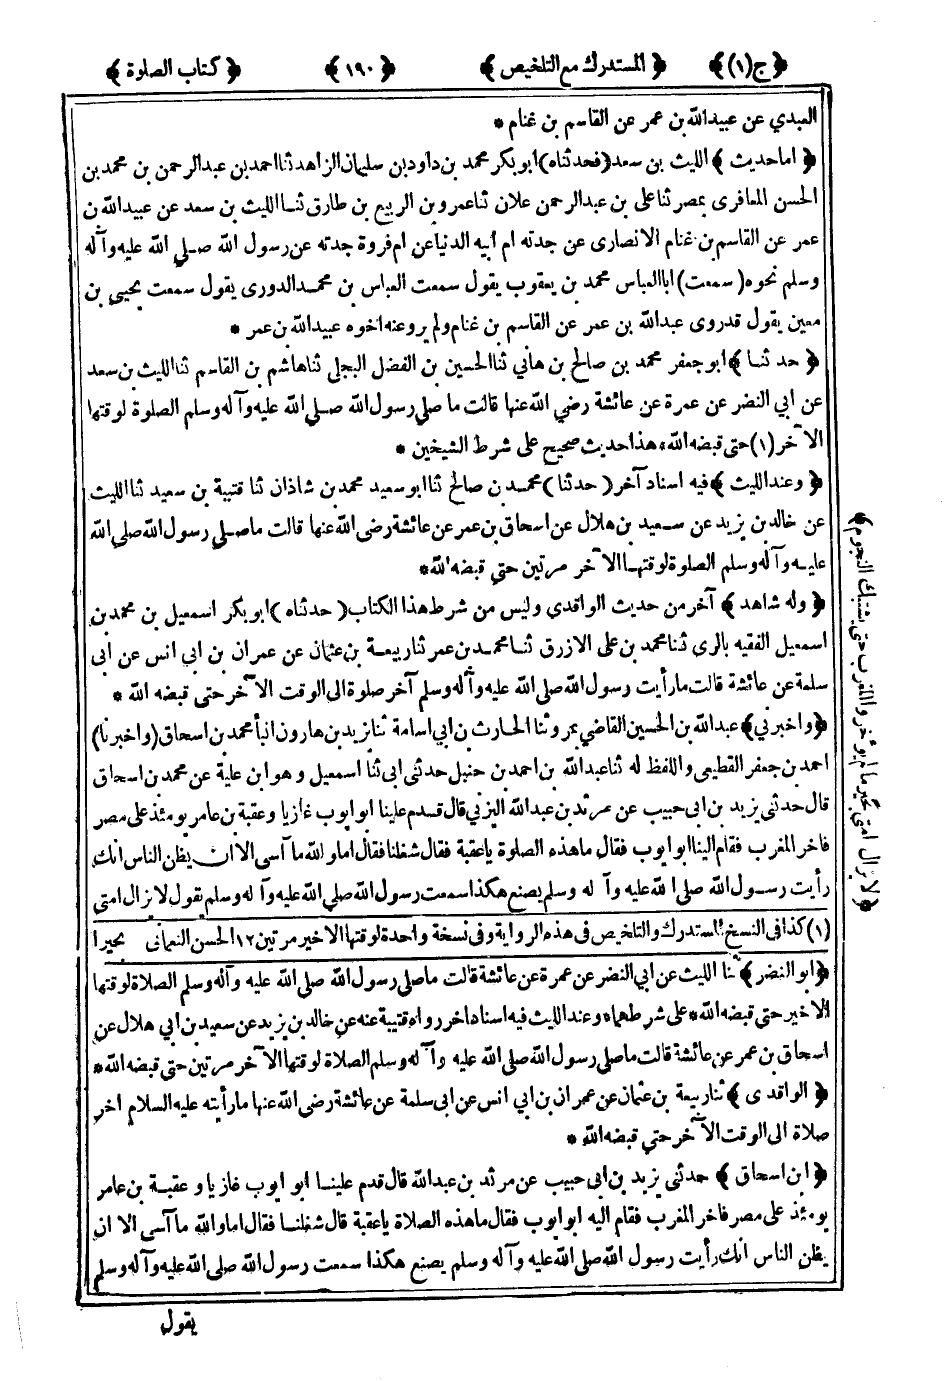 ﴿ج(١)﴾ ﴿المستدرك مع التلخيص﴾ ﴿١٩٠﴾ ﴿كتاب الصلوة﴾
العبدي عن عبيدالله بن عمر عن القاسم بن غنام *
﴿اما حديث﴾ الليث بن سعد (فحدثناه) ابوبكر محمد بن داود بن سليمان الزاهد ثنا احمد بن عبدالرحمن بن محمد بن
الحسن المعافرى بمصر ثنا على بن عبدالرحمن علان ثنا عمرو بن الربيع بن طارق ثنا الليث بن سعد عن عبيدالله بن
عمر عن القاسم بن غنام الانصارى عن جدته ام ابيه الدنيا عن ام فروة جدته عن رسول الله صلي الله عليه وآله
وسلم نحوه (سمعت) ابا العباس محمد بن يعقوب يقول سمعت العباس بن محمد الدورى يقول سمعت يحيى بن
معين يقول قد روى عبدالله بن عمر عن القاسم بن غنام ولم يرو عنه اخوه عبيدالله بن عمر *
﴿حدثنا﴾ ابو جعفر محمد بن صالح بن هاني ثنا الحسين بن الفضل البجلى ثنا هاشم بن القاسم ثنا الليث بن سعد
عن ابي النضر عن عمرة عن عائشة رضي الله عنها قالت ما صلي رسول الله صلي الله عليه وآله وسلم الصلوة لوقتها
الآخر (١) حتى قبضه الله * هذا حديث صحيح على شرط الشيخين *
﴿وعند الليث﴾ فيه اسناد آخر (حدثنا) محمد بن صالح ثنا ابو سعيد محمد بن شاذان ثنا قتيبة بن سعيد ثنا الليث
عن خالد بن يزيد عن سعيد بن هلال عن اسحاق بن عمر عن عائشة رضى الله عنها قالت ماصلي رسول الله صلي الله
عليه وآله وسلم الصلوة لوقتها الآخر مرتين حتى قبضه الله*
﴿وله شاهد﴾ آخر من حديث الواقدى وليس من شرط هذا الكتاب (حدثناه) ابوبكر اسمعيل بن محمد بن
اسمعيل الفقيه بالرى ثنا محمد بن على الازرق ثنا محمد بن عمر ثنا ربيعة بن عثمان عن عمران بن ابي انس عن ابى
سلمة عن عائشة قالت ما رأيت رسول الله صلى الله عليه وآله وسلم آخر صلوة الى الوقت الآخر حتى قبضه الله *
﴿واخبرني﴾ عبدالله بن الحسين القاضي بمرو ثنا الحارث بن ابي اسامة ثنا يزيد بن هارون انبأ محمد بن اسحاق (واخبرنا)
احمد بن جعفر القطيعى واللفظ له ثنا عبدالله بن احمد بن حنبل حدثنى ابى ثنا اسمعيل وهو ابن علية عن محمد بن اسحاق
قال حدثنى يزيد بن ابى حبيب عن مرثد بن عبدالله اليزنى قال قدم علينا ابو ايوب غازيا وعقبة بن عامر يومئذ على مصر
فاخر المغرب فقام الينا ابو ايوب فقال ما هذه الصلوة يا عقبة فقال شغلنا فقال اما والله ما آسى الا ان يظن الناس انك
رأيت رسول الله صلى الله عليه وآله وسلم يصنع هكذا سمعت رسول الله صلى الله عليه وآله وسلم يقول لا يزال امتى
(١) كذا فى النسخ المستدرك والتلخيص فى هذه الرواية وفى نسخة واحدة لوقتها الاخير مرتين ١٢ الحسن النعمانى بخير ا
﴿ابو النضر﴾ ثنا الليث عن ابي النضر عن عمرة عن عائشة قالت ماصلي رسول الله صلى الله عليه وآله وسلم الصلاة لوقتها
الاخير حتى قبضه الله* على شرطهما* وعند الليث فيه اسناد اخر رواه قتيبة عنه عن خالد بن يزيد عن سعيد بن ابي هلال عن
اسحاق بن عمر عن عائشة قالت ماصلي رسول الله صلى الله عليه وآله وسلم الصلاة لوقتها الآخر مرتين حتى قبضه الله*
﴿الواقدى﴾ ثنا ربيعة بن عثمان عن عمران بن ابي انس عن ابى سلمة عن عائشة رضى الله عنها ما رأيته عليه السلام اخر
صلاة الى الوقت الآخر حتى قبضه الله *
﴿ابن اسحاق﴾ حدثنى يزيد بن ابى حبيب عن مرثد بن عبدالله قال قدم علينا ابو ايوب غازيا وعقبة بن عامر
يومئذ على مصر فاخر المغرب فقام اليه ابو ايوب فقال ماهذه الصلاة يا عقبة قال شغلنا فقال اما والله ما آسى الا ان
يظن الناس انك رأيت رسول الله صلى الله عليه وآله وسلم يصنع هكذا سمعت رسول الله صلى الله عليه وآله وسلم
يقول
﴿لا يزال امتى بخير ما لم يؤخروا المغرب حتى يشتبك النجوم﴾